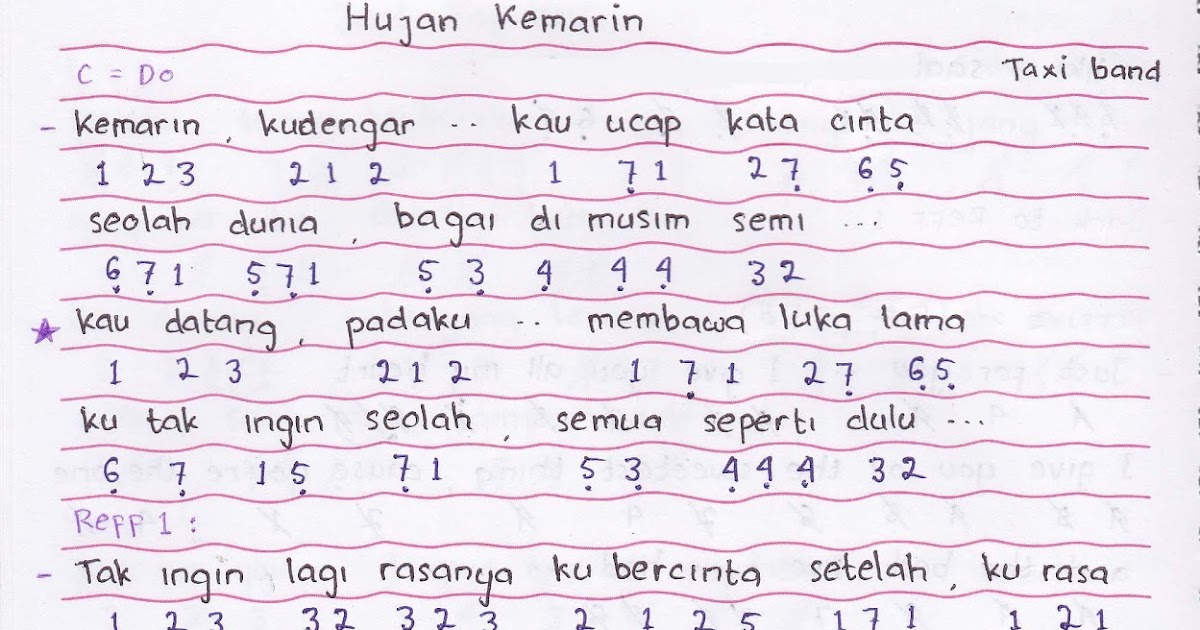 Hujan Kemarin
C = Do Taxi band
- Kemarin, kudengar .. kau ucap kata cinta
1 2 3 2 1 2 1 7̣ 1 2 7̣ 6̣ 5̣
seolah dunia, bagai di musim semi ...
6̣ 7̣ 1 5̣ 7̣ 1 5̣ 3̣ 4̣ 4̣ 4̣ 3 2
★ kau datang, padaku .. membawa luka lama
1 2 3 2 1 2 1 7̣ 1 2 7̣ 6̣ 5̣
ku tak ingin seolah, semua seperti dulu ...
6̣ 7̣ 1 5̣ 7̣ 1 5̣ 3̣ 4̣ 4̣ 4̣ 3 2
Reff 1 :
- Tak ingin lagi rasanya ku bercinta setelah, ku rasa
1 2 3 3 2 3 2 3 2 1 2 5 1 7 1 1 2 1